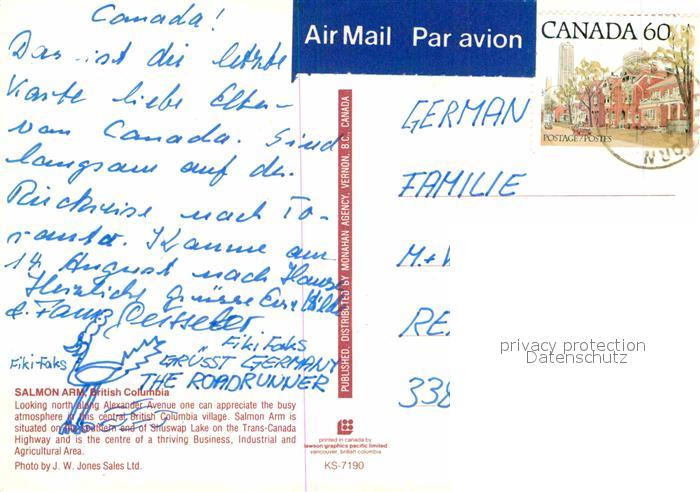 Canada!
Das ist die letzte
Karte liebe Elter-
von Canada. Sind
langsam auf der
Rückreise nach To-
ronto. Komme am
14. August nach Hause
Herzliche grüsse Eure Hilde
&
Fiki-Faks
Fiki-Faks
GRÜSST GERMANY
THE ROADRUNNER
SALMON ARM, British Columbia
Looking north along Alexander Avenue one can appreciate the busy
atmosphere of this central British Columbia village. Salmon Arm is
situated on the southern end of Shuswap Lake on the Trans-Canada
Highway and is the centre of a thriving Business, Industrial and
Agricultural Area.
Photo by J. W. Jones Sales Ltd.
Air Mail Par avion
PUBLISHED, DISTRIBUTED BY MONAHAN AGENCY, VERNON, B.C., CANADA
printed in canada by
lawson graphics pacific limited
vancouver, british columbia
KS-7190
CANADA 60
POSTAGE/POSTES
GERMAN
FAMILIE
M.+
RE
338
privacy protection
Datenschutz